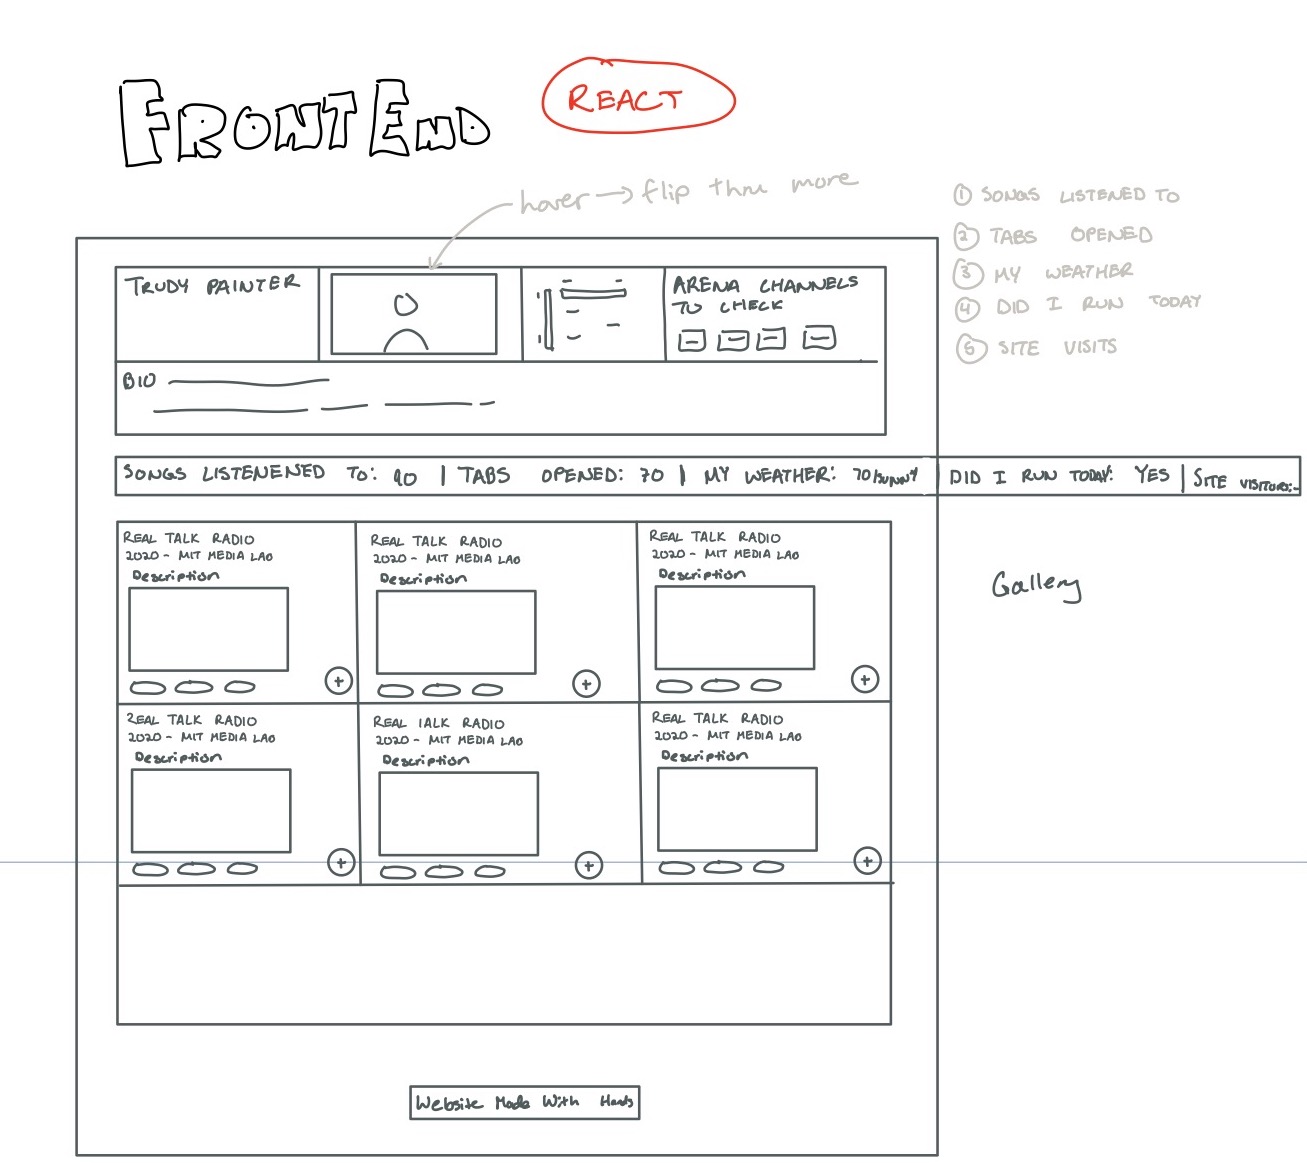 FRONTEND
REACT
hover → flip thru more
① SONGS LISTENED TO
② TABS OPENED
③ MY WEATHER
④ DID I RUN TODAY
⑤ SITE VISITS
TRUDY PAINTER
ARENA CHANNELS
TO CHECK
BIO
SONGS LISTENENED TO: 90 | TABS OPENED: 70 | MY WEATHER: 70/SUNNY | DID I RUN TODAY: YES | SITE VISITORS:
REAL TALK RADIO
2020 - MIT MEDIA LAB
Description
+
REAL TALK RADIO
2020 - MIT MEDIA LAB
Description
+
REAL TALK RADIO
2020 - MIT MEDIA LAB
Description
+
Gallery
REAL TALK RADIO
2020 - MIT MEDIA LAB
Description
+
REAL TALK RADIO
2020 - MIT MEDIA LAB
Description
+
REAL TALK RADIO
2020 - MIT MEDIA LAB
Description
+
Website Made With Hands